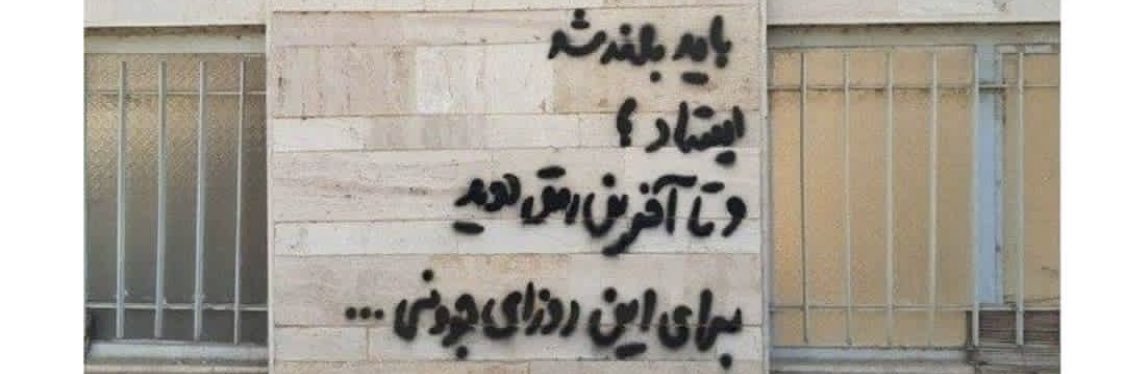 باید بلند شد
ایستاد ؟
و تا آخرین رمق دوید
برای این روزای جوونی ...